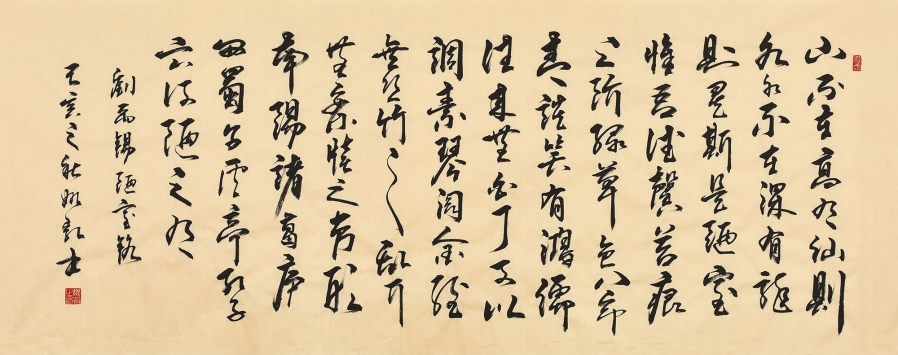 山不在高有仙則
名水不在深有龍
則靈斯是陋室
惟吾德馨苔痕
上階綠草色入帘
青談笑有鴻儒
往來無白丁可以
調素琴閱金經
無絲竹之亂耳
無案牘之勞形
南陽諸葛廬
西蜀子雲亭孔子
云何陋之有
劉禹錫陋室銘
之秋